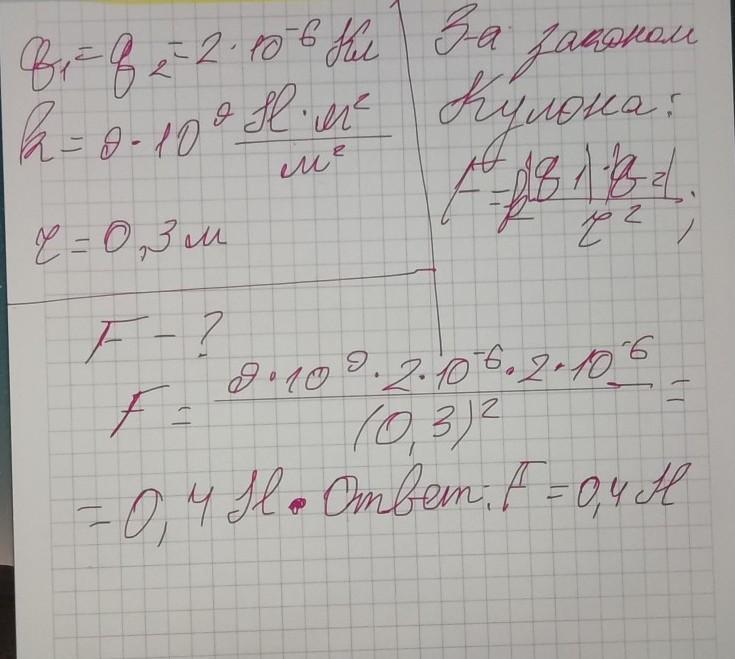 q₁ = q₂ = 2 · 10⁻⁶ Кл
k = 9 · 10⁹ Н · м² / м²
r = 0,3 м
F – ?
З-а законом
Кулона:
F = k |q1| · |q2| / r²;
F = 9 · 10⁹ · 2 · 10⁻⁶ · 2 · 10⁻⁶ / (0,3)² =
= 0,4 Н. Ответ: F = 0,4 Н